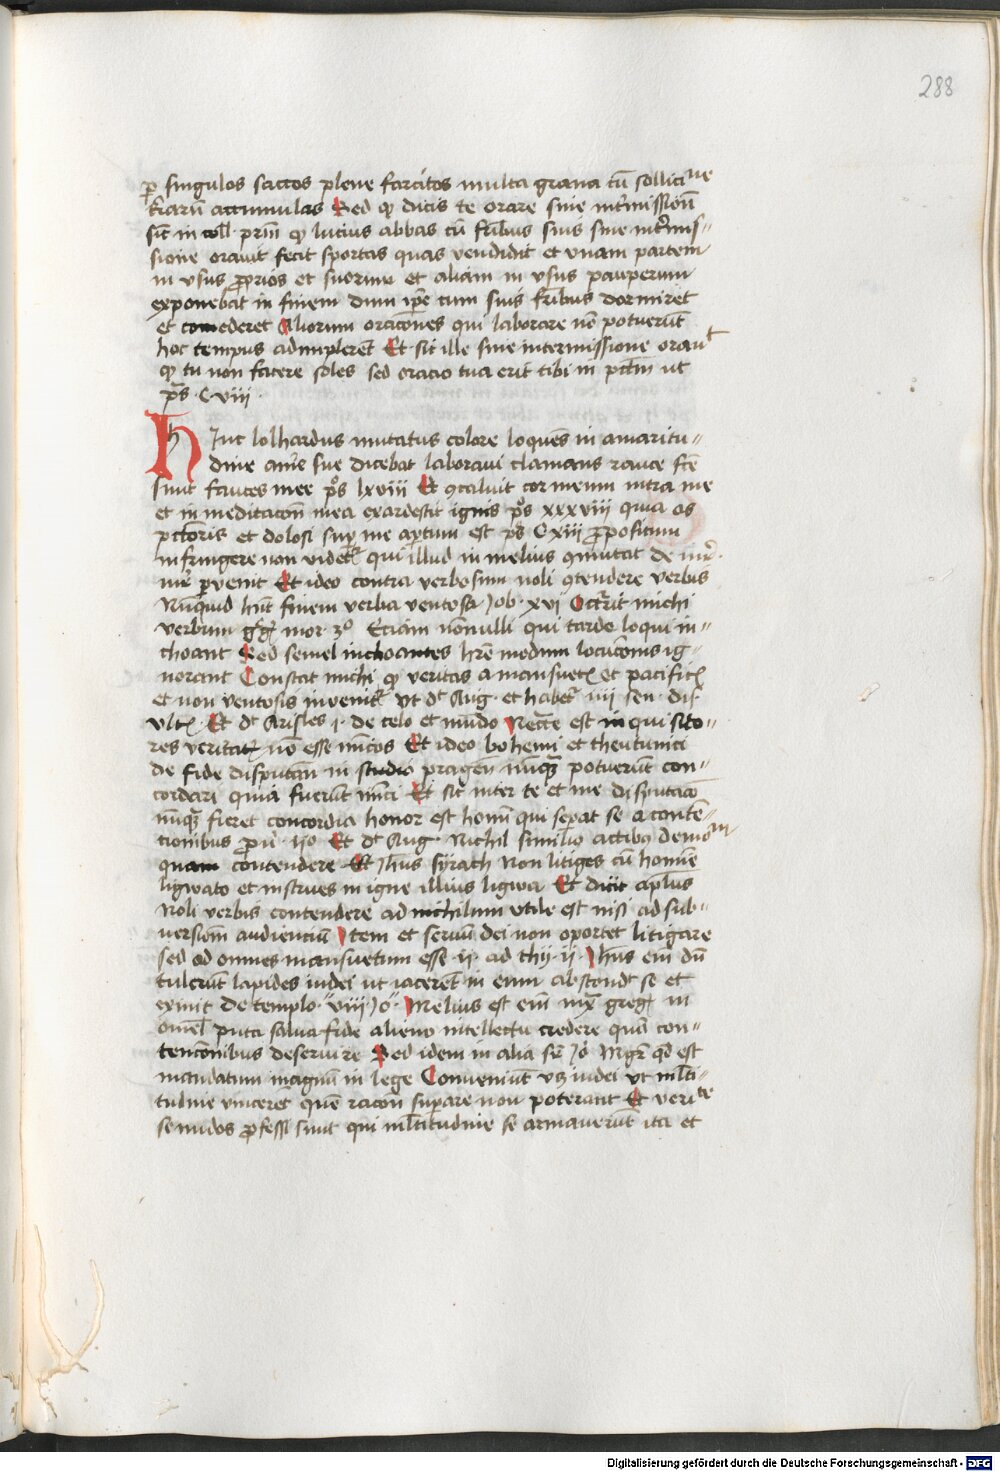 288
ꝑ singulos saccos plene farcitos multa grana cū sollicitue
triarū accumulas Sed ꝙ dicis te orare sine int'missiōn
sic̄ in coll̄ · prim̄ ꝙ lucius abbas cū fr̄ibus suis sine int'mis-
sione orauit fecit sportas quas vendidit et vnam partem
in vsus ꝓprios et suorum et aliam in vsus pauperum
exponebat in finem dum ip̄e cum suis fr̄ibus dormiret
et comederet Aliorum orac̄ones qui laborare nō potuerūt
hoc tempus adimplerēt Et sic ille sine intermissione orauit
ꝙ tu non facere soles sed oracio tua erit tibi in pctm̄ ut
ps̄ · Cviii ·
HInc lolhardus mutatus colore loquēs in amaritu-
dine anīe sue dicebat laboraui clamans rauce fc̄e
sunt fauces mee ps̄ lxviii Et ꝯcaluit cor meum intra me
et in meditac̄on mea exardescit ignis ps̄ xxxviii quia os
pctoris et dolosi sup̄ me aꝑtum est ps̄ Cxiii ꝓpositum
infringere non videtr̄ qui illud in melius ꝯmutat de
ꝑvenit Et ideo contra verbosum noli ꝯtendere verbis
Nūquid hn̄t finem verba ventosa Job · xvi Occ̄rit michi
verbum gͥg mor · 3º Etiam nōnulli qui tarde loqui in-
choant Sed semel inchoantes hr̄e modum locuc̄onis ig-
norant Constat michi ꝙ veritas a mansuetꝭ et pacificꝭ
et non ventosis invenitr̄ Vt dt̄ Aug · et habet' iiii sen · dis̄
vltꝭ · Et dt̄ Aris̄les i · de celo et mūdo Necc̄e est inquisito-
res veritatꝭ nō esse īmicos Et ideo bohemi et theutunici
de fide disputan̄ in studio pragen̄ nūq̄ potuerūt con-
cordari quia fuerūt īmici Et sic inter te et me disputac̄o
nūq̄ fieret concordia honor est hom̄i qui seꝑat se a conten-
tionibus ꝓu' · 20 Et dt̄ Aug · Nichil similius actibus demonū
quam contendere Et Jhūs syrach Non litiges cū homīe
lignato et instrues in igne illius ligna Et dicit apl̄us
Noli verbis contendere ad nichilum vtile est nisi ad sub-
versiōem audienciū Item et seruū dei non oportet litigare
sed ad omnes mansuetum esse · ii · ad thy · ii · Jhūs enī dū
tulerūt lapides iudei ut iacerēt in eum abscondt̄ se et
exiuit de templo · viii · Jo · Melius est enī iux̄ greḡ in
omel̄ puta salua fide alieno intellectu credere quā con-
tenc̄onibus deseruire Sed idem in alia sꝛ̄ Jō Mgr̄ qd̄ est
mandatum magnū in lege Conueniūt vꝫ iudei ut mlti-
tudine vincerēt quē rac̄on suꝑare non poterant Et verite
se nudos ꝓfessi sunt qui mltitudine se armauerūt ita et
Digitalisierung gefördert durch die Deutsche Forschungsgemeinschaft - DFG